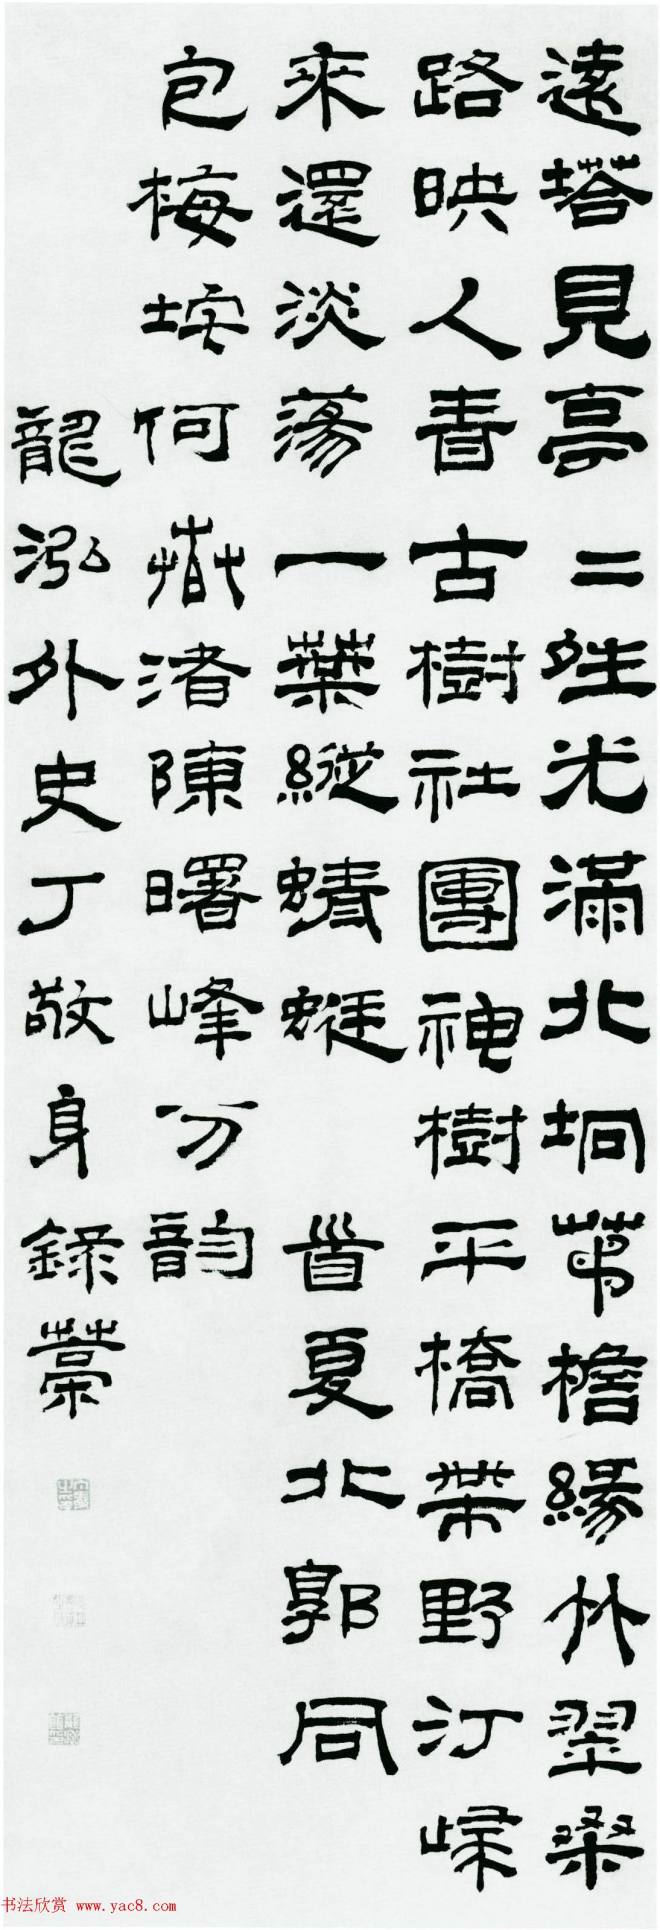 遠塔見亭二夝光滿北坰茅檐緣竹翠桑
路映人青古樹社團神樹平橋帶野汀歸
來還淡蕩一葉縱蜻蜓 首夏北郭同
包梅何渚陳曙峰分韻
龍泓外史丁敬身錄藁
书法欣赏 www.yac8.com